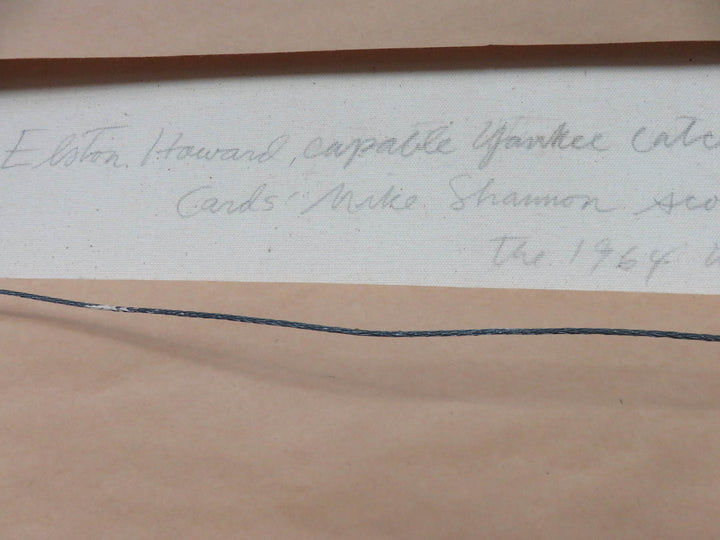 Elston Howard, capable Yankee catc
Cards' Mike Shannon sco
the 1964 W